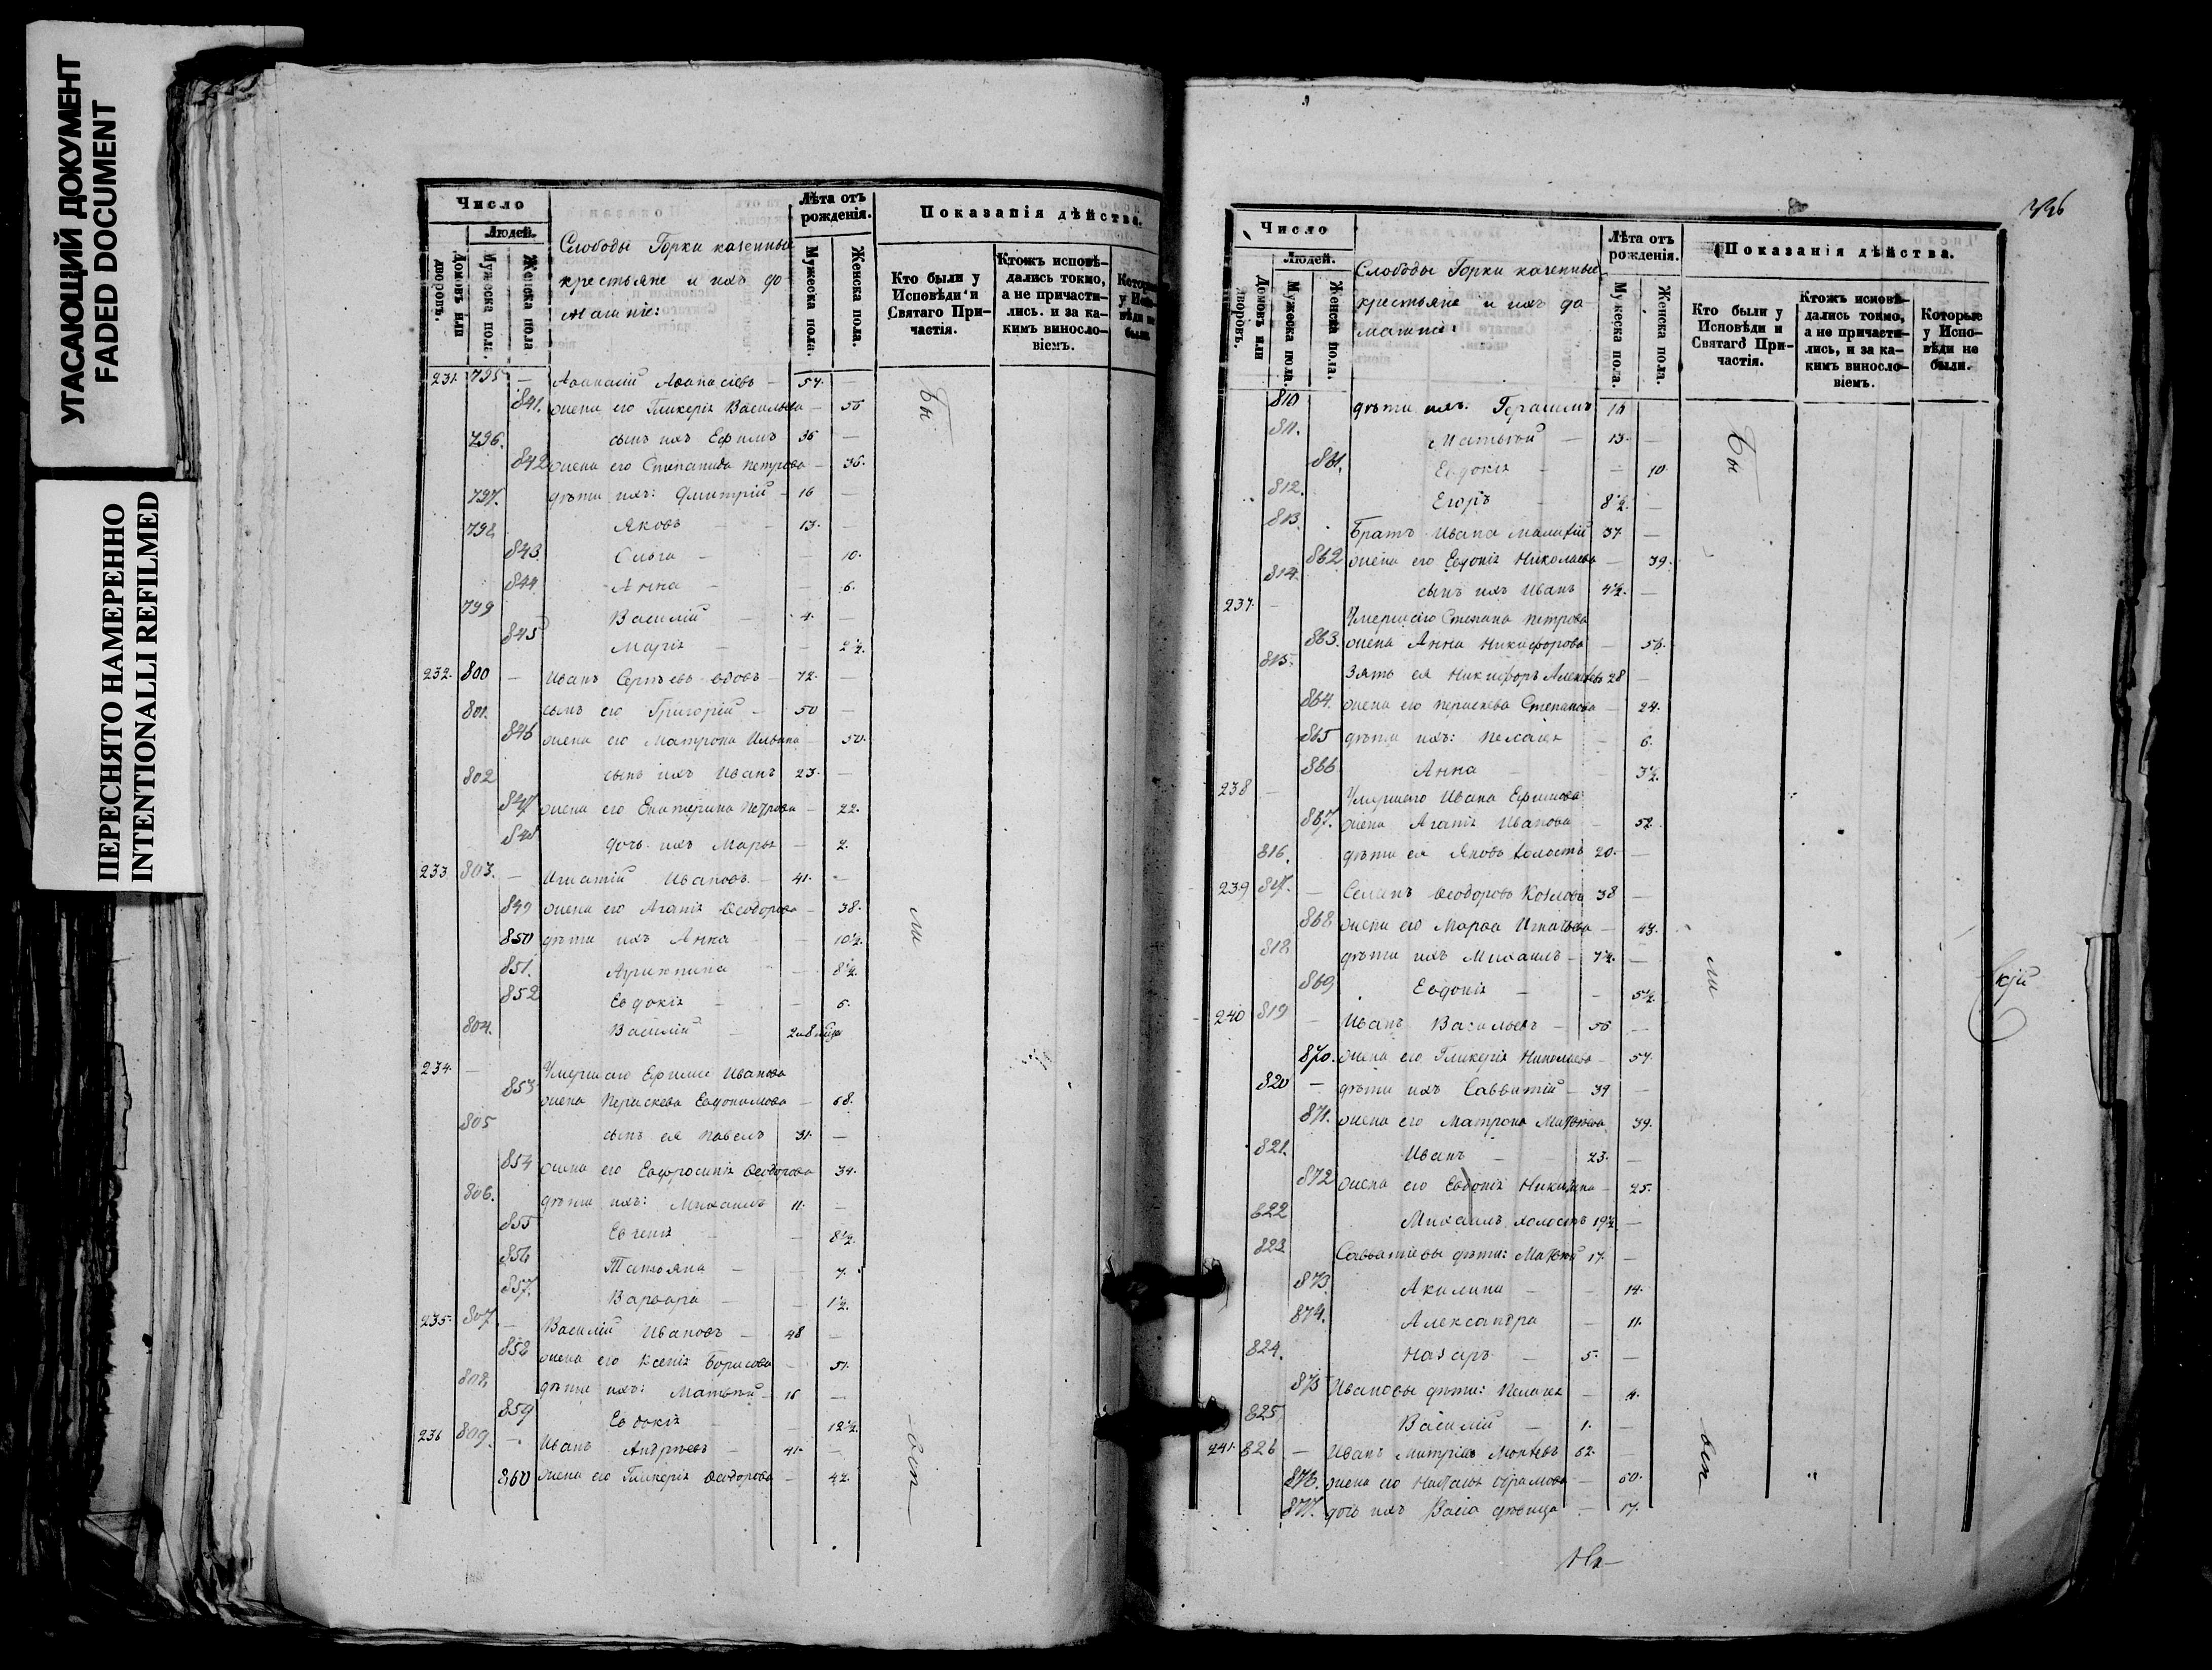 УГАСАЮЩИЙ ДОКУМЕНТ
FADED DOCUMENT
ПЕРЕСНЯТО НАМЕРЕННО
INTENTIONALLI REFILMED
Число
Людей.
Домовъ или дворовъ.
Мужеска пола.
Женска пола
Слободы Горки казенные
крестьяне и ихъ до
машніе:
Лѣта отъ рожденія.
Мужеска пола.
Женска пола.
Показанія дѣйства.
Кто были у Исповѣди и Святаго Причастія.
Ктожъ исповѣдались токмо, а не причастились. и за какимъ винословіемъ.
231. 795 — Аѳанасій Аѳанасіевъ — 57. —
841. жена его Гликерія Васильева — 56
796. сынъ ихъ Ефимъ 36 —
842 жена его Степанида Петрова — 36.
797. дѣти ихъ: Дмитрій — 16 —
798 Яковъ — 13. —
843. Ольга — — 10.
844 Анна — — 6.
799 Василій — 4. —
845 Марія — — 2½.
232. 800 — Иванъ Сергѣевъ вдовъ — 72. —
801. сынъ его Григорій — 50 —
846 жена его Матрона Ильина — 50.
802 сынъ ихъ Иванъ 23. —
847 жена его Екатерина Петрова — 22.
848 дочь ихъ Марья — 2.
233 803. — Игнатій Ивановъ — 41. —
849 жена его Агапія Ѳеодорова — 38.
850 дѣти ихъ Анна — — 10½.
851. Агрипина — 8½.
852 Евдокія — — 6.
804. Василій — 2 и 8 мѣсяц
234. — Умершаго Ефима Иванова
853 жена Параскева Евдокимова — 68.
805 сынъ ея Павелъ 31. —
854 жена его Евфросинія Ѳеодорова 34.
806. дѣти ихъ: Михаилъ 11. —
855 Евгенія — 8½.
856 Татьяна — — 7.
857. Варвара — — 1½.
235. 807. — Василій Ивановъ — 48 —
858 жена его Ксенія Борисова — 51.
808. дѣти ихъ: Матвѣй — 16 —
859 Евдокія — 12½.
236 809. — Иванъ Андреевъ — 41. —
860 жена его Гликерія Ѳеодорова — 42.
Бы
ли
вси
Число
Людей.
Домовъ или дворовъ.
Мужеска пола.
Женска пола.
Слободы Горки казенные
крестьяне и ихъ до
машніе:
Лѣта отъ рожденія.
Мужеска пола.
Женска пола.
Показанія дѣйства.
Кто были у Исповѣди и Святаго Причастія.
Ктожъ исповѣдались токмо, а не причастились, и за какимъ винословіемъ.
Которые у Исповѣди не были.
810 дѣти ихъ: Герасимъ 16
811. Матвѣй — 13. —
861. Евдокія — — 10
812. Егоръ 8½. —
813. Братъ Ивана 37 —
862 жена его Евдокія Николаева — 39.
814. сынъ ихъ Иванъ 4½. —
237. — Умершаго Степана Петрова
863. жена Анна Никифорова — 56.
815. Зять ея Никифоръ Алексѣевъ 28 —
864. жена его Параскева Степанова — 24.
865 дѣти ихъ: Пелагея — 6.
866 Анна — 3½.
238 — Умершаго Ивана Ефимова
867. жена Агапія Иванова — 52
816. дѣти ея Яковъ холостъ 20. —
239 817. — Семенъ Ѳеодоровъ Козловъ 38 —
868 жена его Марѳа Игнатьева — 43.
818 дѣти ихъ Михаилъ — 7½. —
869 Евдокія — — 5½.
240 819 — Иванъ Васильевъ — 56 —
870. жена его Гликерія Николаева — 57.
820 — дѣти ихъ Савватій — 39 —
871. жена его Матрона Матвѣева 39.
821. Иванъ — 23. —
872 жена его Евдокія Никитина — 25.
822 Михаилъ холостъ 19½ —
823 Савватіевы дѣти: Матвѣй 17. —
873 Акилина — — 14.
874. Александра — 11.
824. Назаръ — 5. —
875 Ивановы дѣти: Пелагея — 4.
825 Василій — 1. —
241. 826 — Иванъ Митріевъ 62. —
876. жена его Наталья — 60.
877. дочь ихъ Васса дѣвица — 17.
Бы
ли
вси
скій